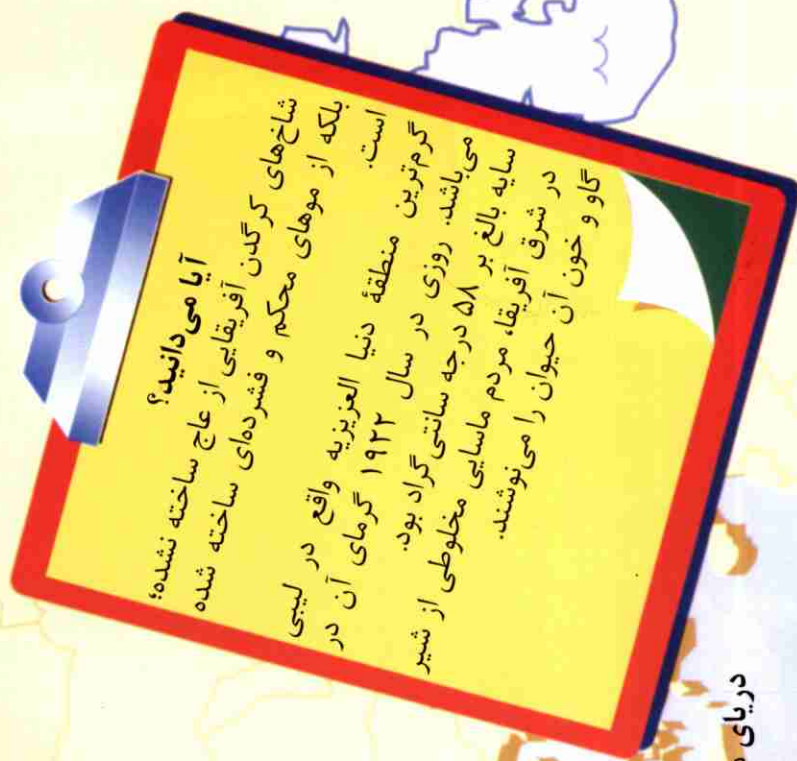 آیا می‌دانید؟
شاخ‌های کرگدن آفریقایی از عاج ساخته نشده؛
بلکه از موهای محکم و فشرده‌ای ساخته شده
است.
گرم‌ترین منطقهٔ دنیا العزیزیه واقع در لیبی
می‌باشد. روزی در سال ۱۹۲۲ گرمای آن در
سایه بالغ بر ۵۸ درجه سانتی گراد بود.
در شرق آفریقا، مردم ماسایی مخلوطی از شیر
گاو و خون آن حیوان را می‌نوشند.
دریای